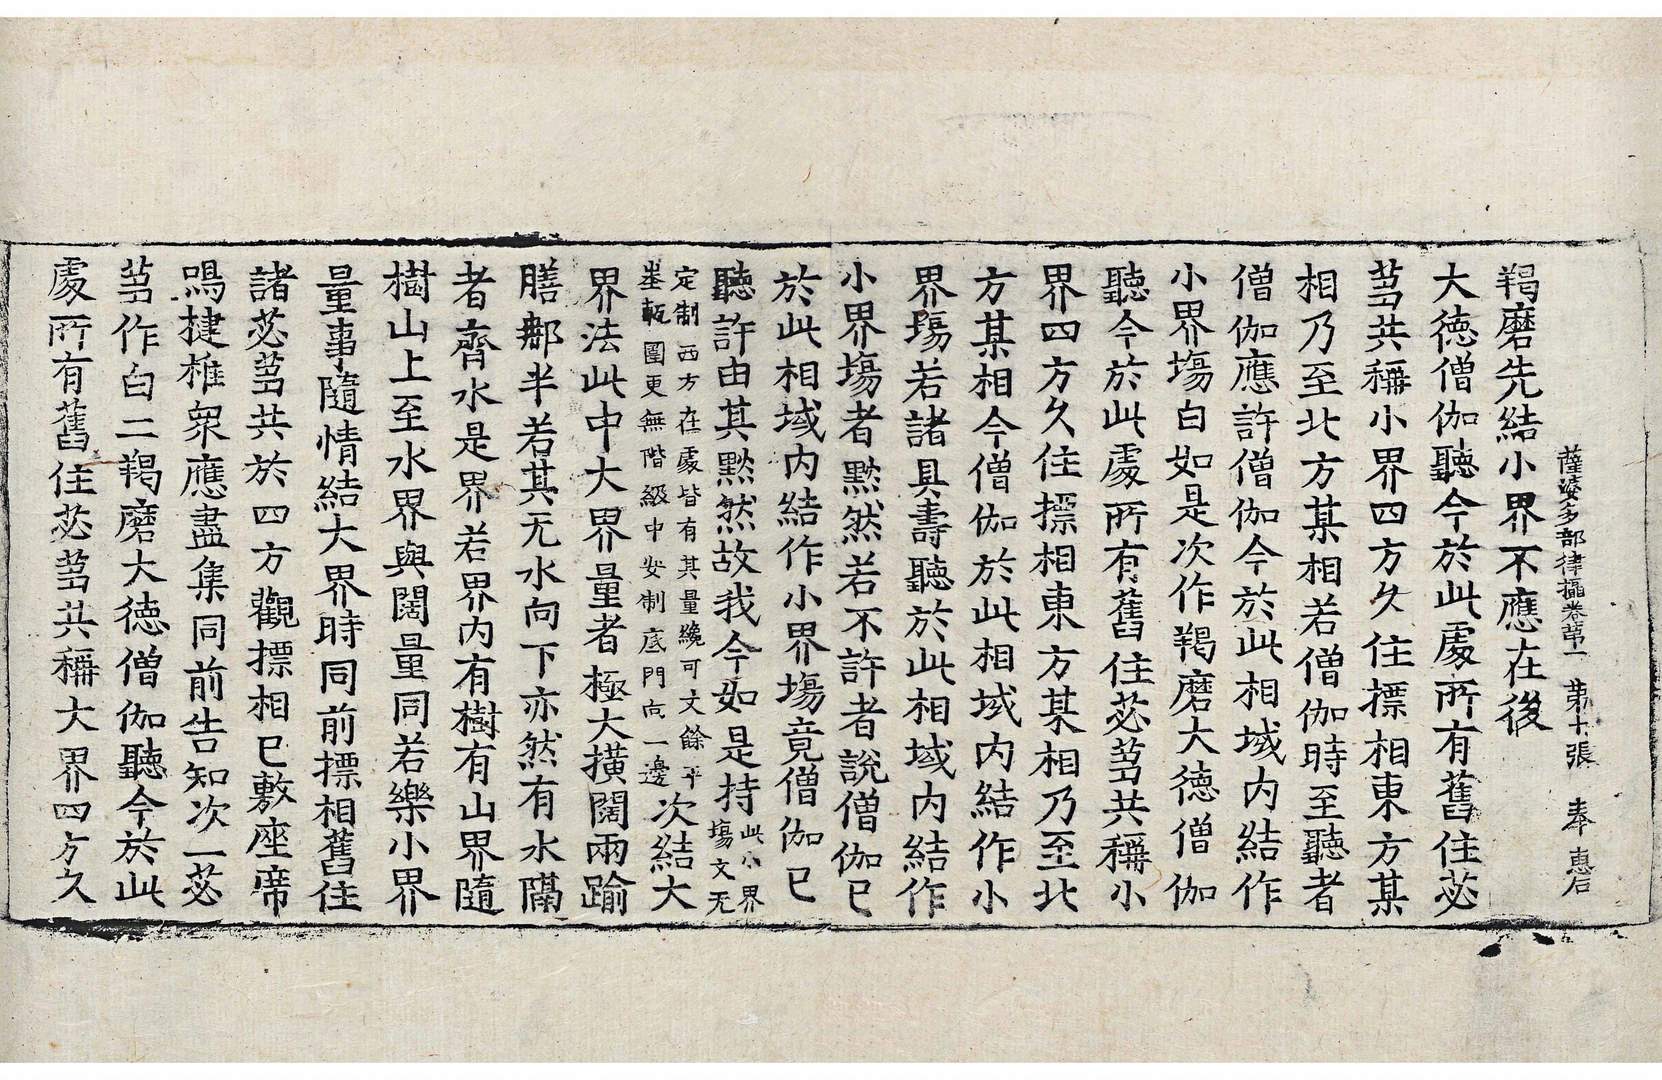 薩婆多部律攝卷苐一 苐十張 奉 惠石
羯磨先結小界不應在後
大德僧伽聽今於此處所有舊住苾
蒭共稱小界四方久住摽相東方某
相乃至北方某相若僧伽時至聽者
僧伽應許僧伽今於此相域內結作
小界塲白如是次作羯磨大德僧伽
聽今於此處所有舊住苾蒭共稱小
界四方久住摽相東方某相乃至北
方某相今僧伽於此相域內結作小
界塲若諸具壽聽於此相域內結作
小界塲者黙然若不許者說僧伽已
於此相域內結作小界塲竟僧伽已
聽許由其黙然故我今如是持此小界塲文无
定制西方在處皆有其量纔可丈餘平
壘甎圍更無階級中安制底門向一邊次結大
界法此中大界量者極大擴闊兩踰
膳那半若其无水向下亦然有水隔
者齊水是界若界內有樹有山界隨
樹山上至水界與闊量同若樂小界
量事隨情結大界時同前摽相舊住
諸苾蒭共於四方觀摽相已敷座席
鳴揵椎衆應盡集同前告知次一苾
蒭作白二羯磨大德僧伽聽今於此
處所有舊住苾蒭共稱大界四方久